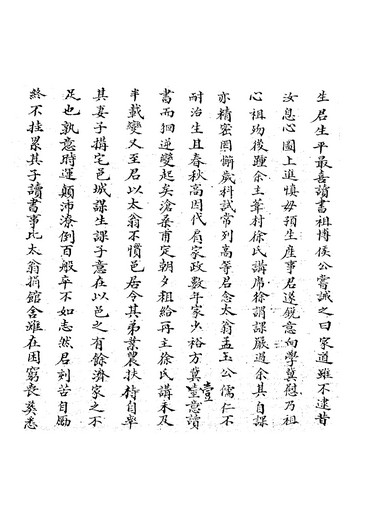 生君生平最喜讀書祖博侯公嘗誡之曰家道雖不逮昔
汝息心圖上進慎毋預生產事君遂銳意向學冀慰乃祖
心祖歿後踵余主葦村徐氏講席徐謂課嚴過余其自課
亦精密罔懈歲科試常列高等君念太翁孟玉公儒仁不
耐治生且春秋高因代肩家政數年家少裕方冀壹意讀
書而洄逆變起矣滄桑甫定朝夕粗給再主徐氏講未及
半載變又至君以太翁不慣邑居令其弟業農扶侍自率
其妻子搆宅邑城謀生課子意在以邑之有餘濟家之不
足也孰意時運顛沛潦倒百般卒不如志然君刻苦自勵
終不挂累其子讀書事比太翁捐館舍雖在困窮喪葬悉